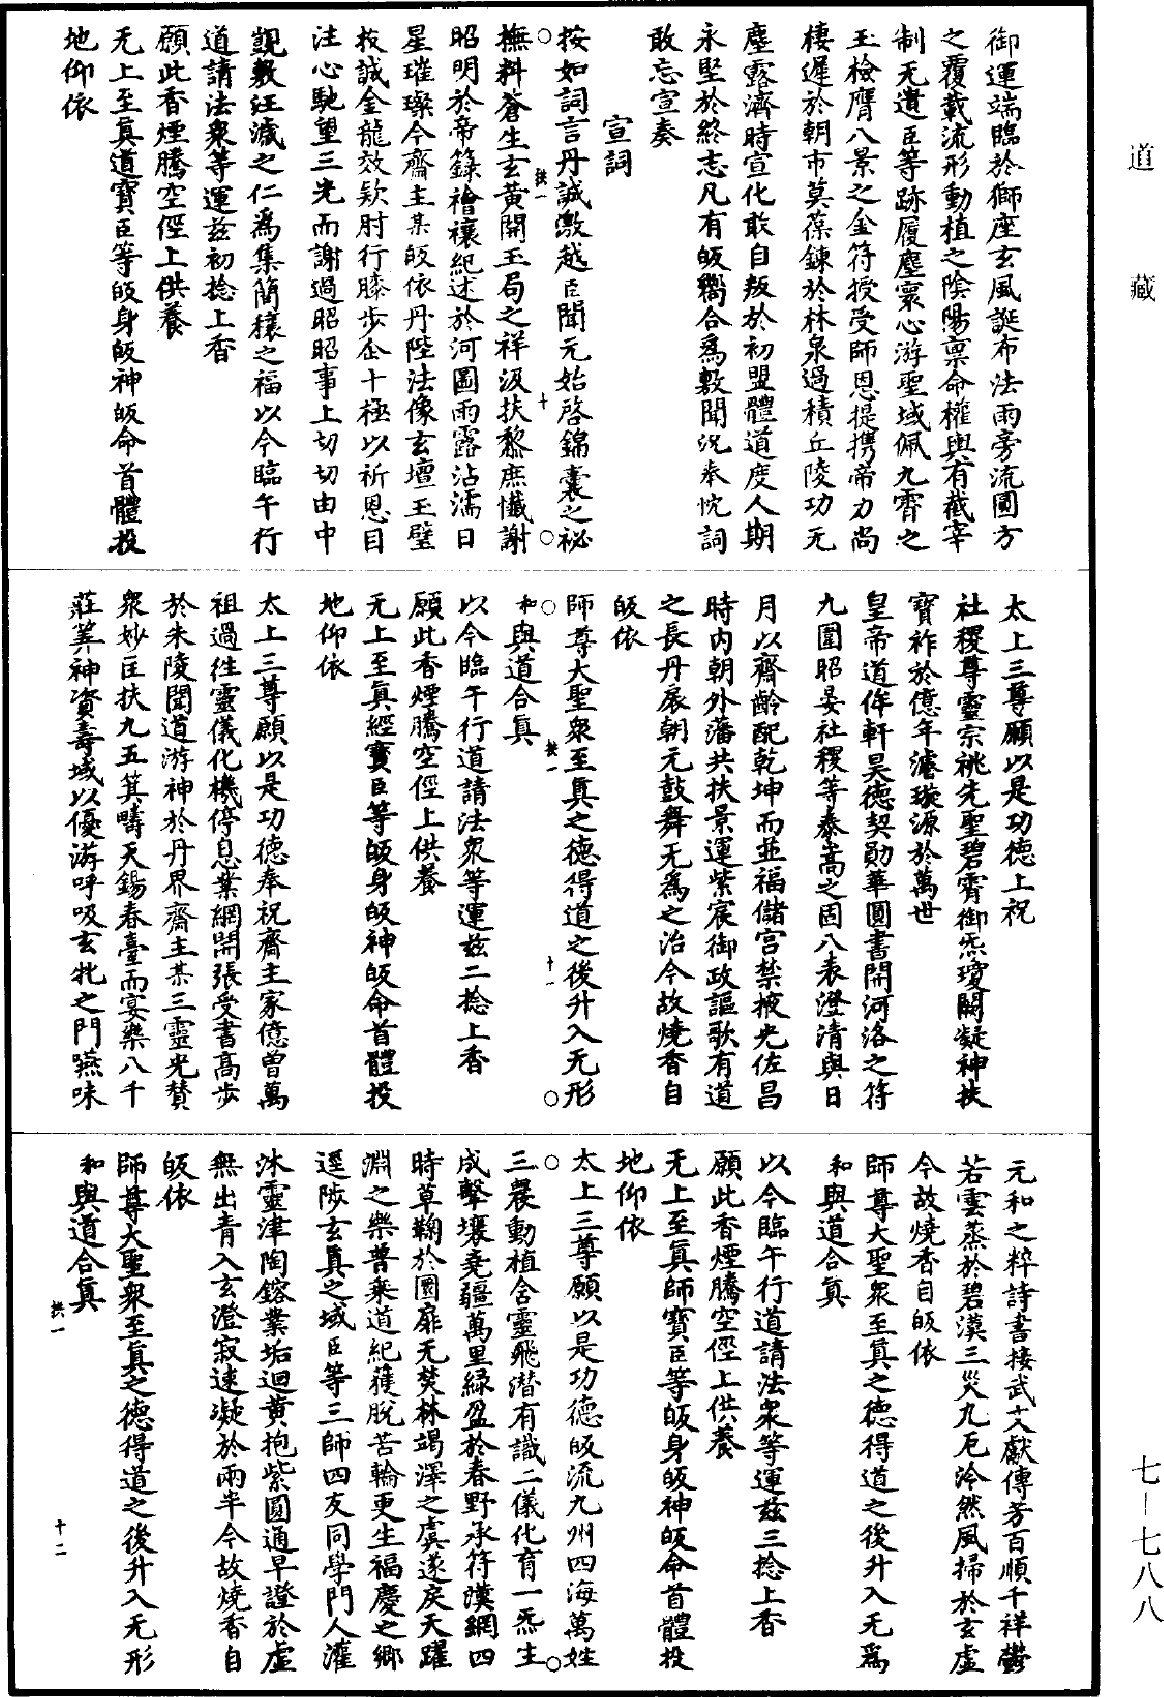 道藏
七—七八八
御運端臨於獅座玄風誕布法雨旁流圓方
之覆載流形動植之陰陽稟命權輿有截宰
制无遺臣等跡履塵寰心游聖域佩九霄之
玉檢膺八景之金符授受師恩提携帝力尚
棲遲於朝市莫葆鍊於林泉過積丘陵功无
塵露濟時宣化敢自叛於初盟體道度人期
永堅於終志凡有皈嚮合為敷聞況奉忱詞
敢忘宣奏
宣詞
按如詞言丹誠激越臣聞元始啓錦囊之祕
撫料蒼生玄黄開玉局之祥汲扶黎庶懺謝
昭明於帝籙禬禳紀述於河圖雨露沾濡日
星璀璨今齋主某皈依丹陛法像玄壇玉璧
披誠金龍效欵肘行膝步企十極以祈恩目
注心馳望三光而謝過昭昭事上切切由中
覬敷汪濊之仁爲集簡穰之福以今臨午行
道請法衆等運茲初捻上香
願此香煙騰空徑上供養
无上至眞道寶臣等皈身皈神皈命首體投
地仰依
太上三尊願以是功德上祝
社稷尊靈宗祧先聖碧霄御炁瓊闕凝神扶
寶祚於億年濬璇源於萬世
皇帝道侔軒昊德契勛華圓書開河洛之符
九圍昭晏社稷等泰嵩之固八表澄清與日
月以齊齡配乾坤而並福儲宮禁掖光佐昌
時内朝外藩共扶景運紫宸御政謳歌有道
之長丹扆朝元鼓舞无爲之治今故燒香自
皈依
師尊大聖衆至真之德得道之後升入无形
和與道合眞
以今臨午行道請法衆等運茲二捻上香
願此香煙騰空徑上供養
无上至眞經寶臣等皈身皈神皈命首體投
地仰依
太上三尊願以是功德奉祝齋主家億曾萬
祖過往靈儀化機停息業網開張受書高步
於朱陵聞道游神於丹界齋主某三靈光贊
衆妙匡扶九五箕疇天錫春臺而宴樂八千
莊筭神資壽域以優游呼吸玄牝之門嚥味
元和之粹詩書接武文獻傳芳百順千祥鬱
若雲蒸於碧漢三災九厄泠然風掃於玄虛
今故燒香自皈依
師尊大聖衆至真之德得道之後升入无爲
和與道合眞
以今臨午行道請法衆等運茲三捻上香
願此香煙騰空徑上供養
无上至眞師寶臣等皈身皈神皈命首體投
地仰依
太上三尊願以是功德皈流九州四海萬姓
三農動植含靈飛潜有識二儀化育一炁生
成擊壤堯疆萬里緑盈於春野承符漢網四
時草鞠於圜扉无焚林竭澤之虞遂戾天躍
淵之樂普乘道紀獲脫苦輪更生福慶之鄉
逕陟玄真之域臣等三師四友同學門人灌
沐靈津陶鎔業垢迴黄抱紫圓通早證於虛
無出青入玄澄寂速凝於兩半今故燒香自
皈依
師尊大聖衆至眞之德得道之後升入无形
和與道合眞